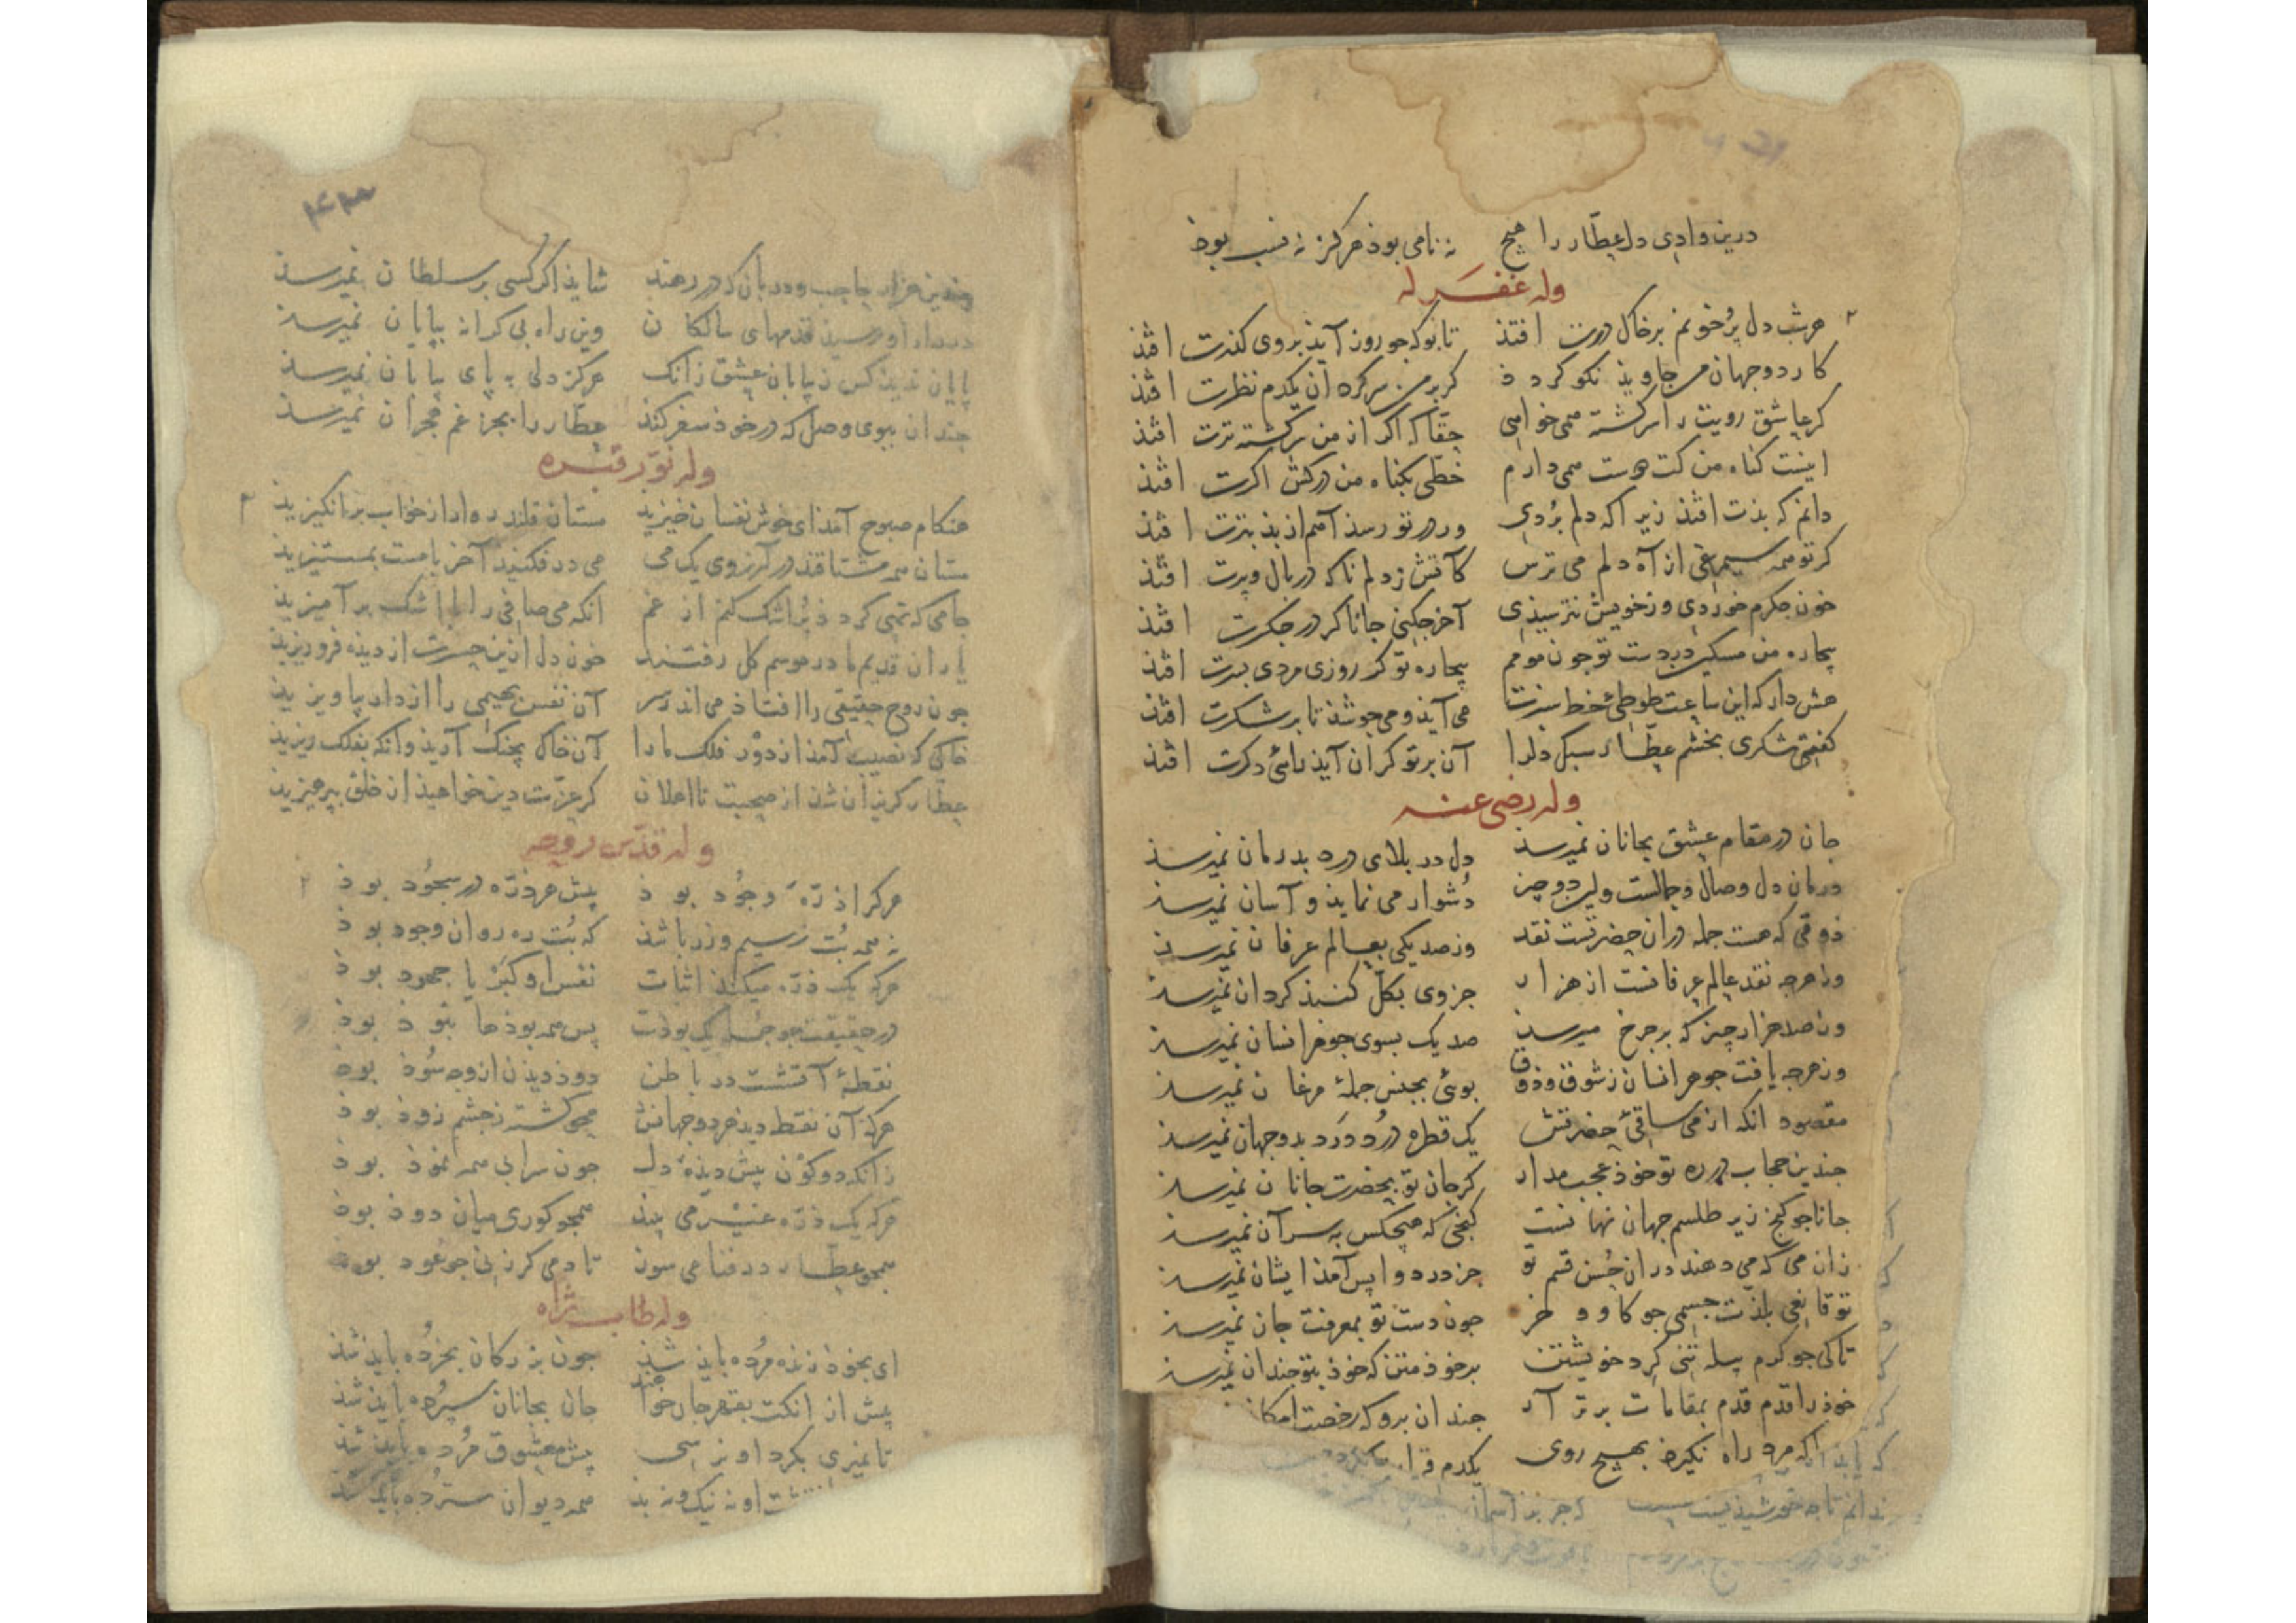 درین وادی دل عطار را هیچ نه نامی بوذ هرکز نه نسب بوذ
وله غفر له
هر شب دل پرخونم برخاک درت افتذ تا بوکه جو روز آیذ بروی کذرت افتذ
کار دو جهان من جاویذ نکو کردذ کر بر من سرکردان یکدم نظرت افتذ
کر عاشق رویت را سرکشته همی خواهی حقا که اکر از من سرکشته ترت افتذ
اینست کناه من کت دوست همی دارم خطی بکناه من درکش اکرت افتذ
دانم که بذت افتذ زیرا که دلم بردی ور در تو رسذ آهم از بذ بترت افتذ
کر تو همه سیمرغی از آه دلم می ترس کآتش زدلم ناکه در بال و پرت افتذ
خون جکرم خوردی وز خویش نترسیذی آخر جکنی جانا کر در جکرت افتذ
بیچاره من مسکین در دست تو جون مومم بیچاره تو کر روزی مردی بسرت افتذ
هش دار که این ساعت طوطی خط سبزت می آیذ و می جوشذ تا بر شکرت افتذ
کفتی شکری بخشم عطار سبک دل را آن بر تو کران آیذ رائی دکرت افتذ
وله رضی عنه
جان در مقام عشق بجانان نمیرسذ دل در بلای درد بدرمان نمیرسذ
درمان دل وصال و جمالست ولین دو چیز دشوار می نمایذ و آسان نمیرسذ
ذوقی که هست جمله دران حضرتست نقد وز صد یکی بعالم عرفان نمیرسذ
وز هرجه نقد عالم عرفانست از هزار جزوی بکل کنبذ کردان نمیرسذ
وز صد هزار چیز که بر جرخ میرسذ صد یک بسوی جوهر انسان نمیرسذ
وز هرجه یافت جوهر انسان ز شوق و ذوق بوئی بجنس جمله مرغان نمیرسذ
مقصود انکه از می ساقی حضرتش یک قطره درد درد بدو جهان نمیرسذ
جندین حجاب در ره تو خوذ عجب مدار کر جان تو بحضرت جانان نمیرسذ
جانا جو کنج زیر طلسم جهان نهانست کنجی که هیچکس به سر آن نمیرسذ
زان می که می دهند دران حسن قسم تو جز درد واپس آمذ ایشان نمیرسذ
تو قانعی بلذت جسمی جو کاو و خر جون دست تو بمعرفت جان نمیرسذ
تاکی جو کرم پیله تنی کرد خویشتن بر خوذ متن که خوذ بتو جندان نمیرسذ
خوذ را قدم قدم بمقامات برتر آر جندان برو که رخصت امکان
اکه مرد راه نکیرذ بهیچ روی یکدم
جندین هزار حاجب و دربان که در رهند شایذ اکر کسی بر سلطان نمیرسذ
در راه او رسیذ قدمهای سالکان وین راه بی کرانه بپایان نمیرسذ
پایان ندیذ کس ز بیابان عشق زانک هرکز دلی به پای بیابان نمیرسذ
جندان ببوی وصل که در خوذ سفر کند عطار را بجز غم هجران نمیرسذ
وله نور قبره
هنکام صبوح آمذ ای خوش نفسان خیزیذ مستان قلندر وار از خواب برانکیزیذ
مستان همه مشتاقند در آرزوی یک می می در فکنیذ آخر با مست بمستیزیذ
جامی که تهی کردذ پر اشک کنم از غم انکه می صافی را با اشک برآمیزیذ
یاران قدیم ما در موسم کل رفتند خون دل ازین حسرت از دیذه فروریزیذ
جون روح حقیقی را افتاذ می اندر سر آن نفس بهیمی را از دار بیاویزیذ
خاکی که نصیب آمذ از دور فلک ما را آن خاک بچنک آریذ وانکه بفلک ریزیذ
عطار کریزان شذ از صحبت نااهلان کر عزت دین خواهیذ از خلق بپرهیزیذ
وله قدس روحه
هرکرا ذره وجود بوذ پیش هر ذره در سجود بوذ
نه همه بت ز سیم و زر باشذ که بت ره روان وجود بوذ
هرکه یک ذره میکند اثبات نفس او کبر یا جهود بوذ
در حقیقت جو جمله یک بوذست پس همه بوذها نبوذ بوذ
نقطه آتشست در باطن دوذ دیذن ازو چه سوذ بوذ
هرکه آن نقطه دیذ هر دو جهانش محو کشته ز جشم زوذ بوذ
زانکه دو کون پیش دیذه دل جون سرابی همه نموذ بوذ
هرکه یک ذره غیر می بیند همجو کوری میان دوذ بوذ
همجو عطار در فنا می سوز تا دمی کر زنی جو عود بوذ
وله طاب ثراه
ای بخوذ زنده مرده بایذ شذ جون بزرکان بخرده بایذ شذ
پیش از انکت بقهر جان خواهند جان بجانان سپرده بایذ شذ
تا نمیری بکرد او نرسی پیش معشوق مرده بایذ شذ
او نه نیک و نه بذ همه دیوان سترده بایذ شذ